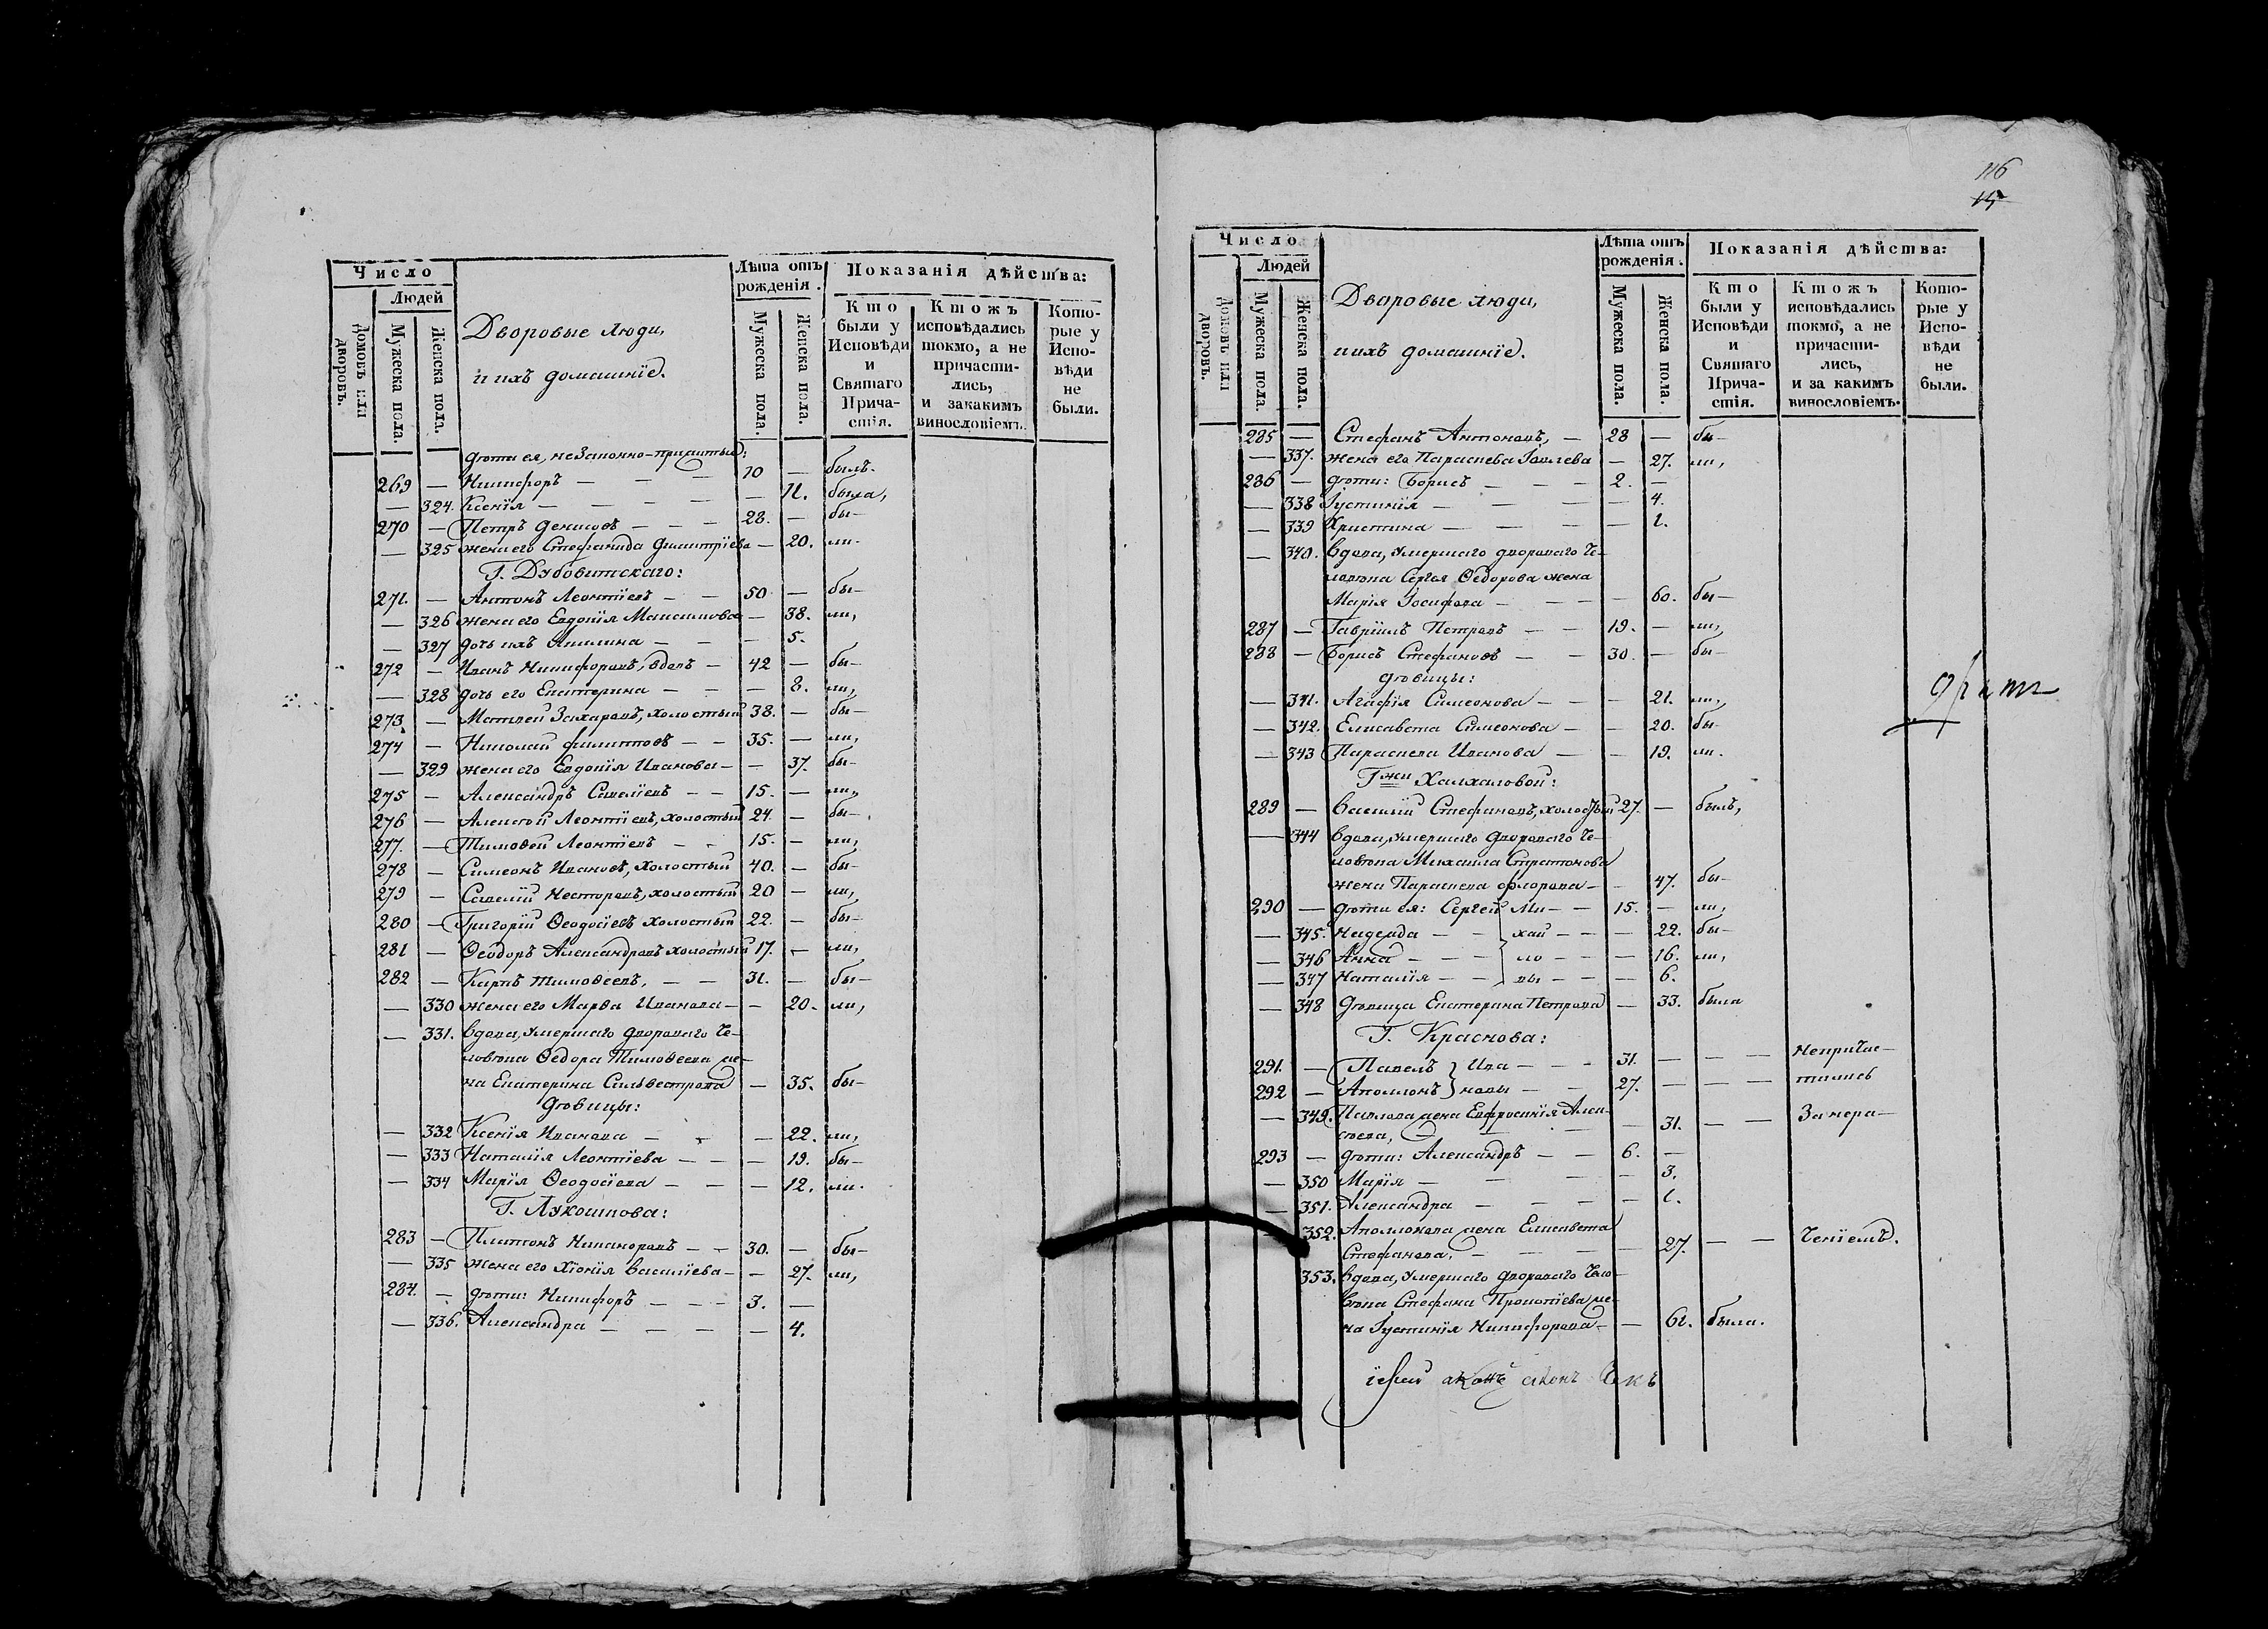 Число
Людей
Домовъ или дворовъ.
Мужеска пола.
Женска пола.
Дворовые люди,
и ихъ домашнїе.
Лѣта отъ рожденія.
Мужеска пола.
Женска пола.
Показанія дѣйства:
Кто были у Исповѣди и Святаго Прича-стія.
Ктожъ исповѣдались токмо, а не причасти-лись, и закакимъ винословіемъ.
Кото-рые у Испо-вѣди не были.
дѣти ея, незаконно-прижитые:
269 — Никифоръ — — — 10 — былъ.
— 324. Ксенїя — — — — 11. была,
270 — Петръ Денисовъ — — — 28. — бы-
— 325 жена его Стефанида Димитрїева — 20. ли.
Г. Дубовитскаго:
271. — Антонъ Леонтїевъ — — 50 — бы-
— 326 жена его Евдокїя Максимова — 38. ли,
— 327 дочь ихъ Акилина — — — 5.
272 — Иванъ Никифоровъ, вдовъ — 42 — бы-
— 328 дочь его Екатерина — — — 8. ли,
273 — Матвей Захаровъ, холостый 38. — бы-
274 — Николай Филиповъ — — 35. — ли,
— 329 жена его Евдокїя Иванова — — 37. бы-
275 — Александръ Савелїевъ — — 15. — ли,
276 — Алексѣй Леонтїевъ, холостый 24. — бы-
277. — Тимоѳей Леонтїевъ — — 15. — ли,
278 — Симеонъ Ивановъ, холостый 40. — бы-
279 — Савелїй Несторовъ, холостый 20 — ли,
280 — Григорїй Ѳеодосїевъ холостый 22. — бы-
281 — Ѳеодоръ Александровъ холостый 17. — ли,
282 — Карпъ Тимоѳеевъ, — — 31. — бы-
— 330 жена его Марѳа Иванова — — 20. ли,
— 331. вдова, умершаго двороваго че-
ловѣка Ѳедора Тимоѳеева же-
на Екатерина Сильвестрова — 35. бы-
Дѣвицы:
— 332 Ксенїя Иванова — — — 22. ли,
— 333 Наталїя Леонтїева — — — 19. бы-
— 334 Марїя Ѳеодосїева — — — 12. ли.
Г. Лукошкова:
283 — Платонъ Никаноровъ — — 30. — бы-
— 335 жена его Хїонїя Василїева — — 27. ли,
284. — дѣти: Никифоръ — — — 3. —
— 336. Александра — — — — 4.
116
Число
Людей
Домовъ или дворовъ.
Мужеска пола.
Женска пола.
Дворовые люди,
и ихъ домашнїе.
Лѣта отъ рожденія.
Мужеска пола.
Женска пола.
Показанія дѣйства:
Кто были у Исповѣди и Святаго Прича-стія.
Ктожъ исповѣдались токмо, а не причасти-лись, и за какимъ винословіемъ.
Кото-рые у Испо-вѣди не были.
285 — Стефанъ Антоновъ, — 28 — бы-
— 337. жена его Параскева Іовлева — 27. ли,
286 — дѣти: Борисъ — — — 2. —
— 338 Іустинїя — — — — 4.
— 339 Христина — — — — 1.
— 340. вдова, умершаго двороваго че-
ловѣка Сергея Ѳедорова жена
Марїя Іосифова — — — — 60. бы-
287 — Гаврїилъ Петровъ — — 19. — ли,
288 — Борисъ Стефановъ — — 30. — бы-
Дѣвицы:
— 341. Агафїя Симеонова — — — 21. ли,
— 342. Елисавета Симеонова — — 20. бы-
— 343 Параскева Иванова — — 19. ли.
Гжи Халхаловой:
289 — Василїй Стефановъ, холостый 27. — былъ,
— 344 вдова, умершаго двороваго че-
ловѣка Михаила Стратонова
жена Параскева Флорова — — 47. бы-
290 — дѣти ея: Сергей Ми- — 15. — ли,
— 345. Надежда — — хай — — — 22. бы-
— 346 Анна — — — ло — — — 16. ли,
— 347 Наталїя — — вы — — — 6.
— 348 Дѣвица Екатерина Петрова — 33. была
Г. Краснова:
291. — Павелъ } Ива — — — 31. — — — Непричас-
292 — Аполлонъ } новы — — 27. — — — тились
— 349. Павлова жена Евфросинїя Алек-
сѣева, — — — — 31. — — За нера-
293 — дѣти: Александръ — — 6. —
— 350 Марїя — — — — 3.
— 351. Александра — — — — 1.
352. Аполлонова жена Елисавета
Стефанова. — — — — 27. — — ченїемъ.
353. вдова, умершаго двороваго чело-
вѣка Стефана Прокопїева же-
на Іустинїя Никифорова — — 61. была.